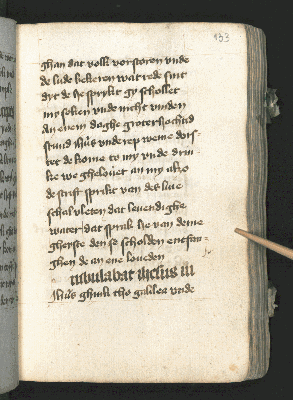 133
ghan dat volk vorstoren vnde
de lude bekeren wat rede sint
dyt de he sprikt gy scholet
my soken vnde nicht vinden
An enem daghe groter hochtid
stund ihus vnde rep weme dor-
tet de kome to my vnde drin-
ke we ghelouet an my also
de scrift sprikt van des liue
schal vleten dat leuendighe
water dat sprak he van deme
gheiste den se scholden entfan-
ghen de an ene loueden
Ambulabat ihesus in
Ihus ghink tho galilea vnde